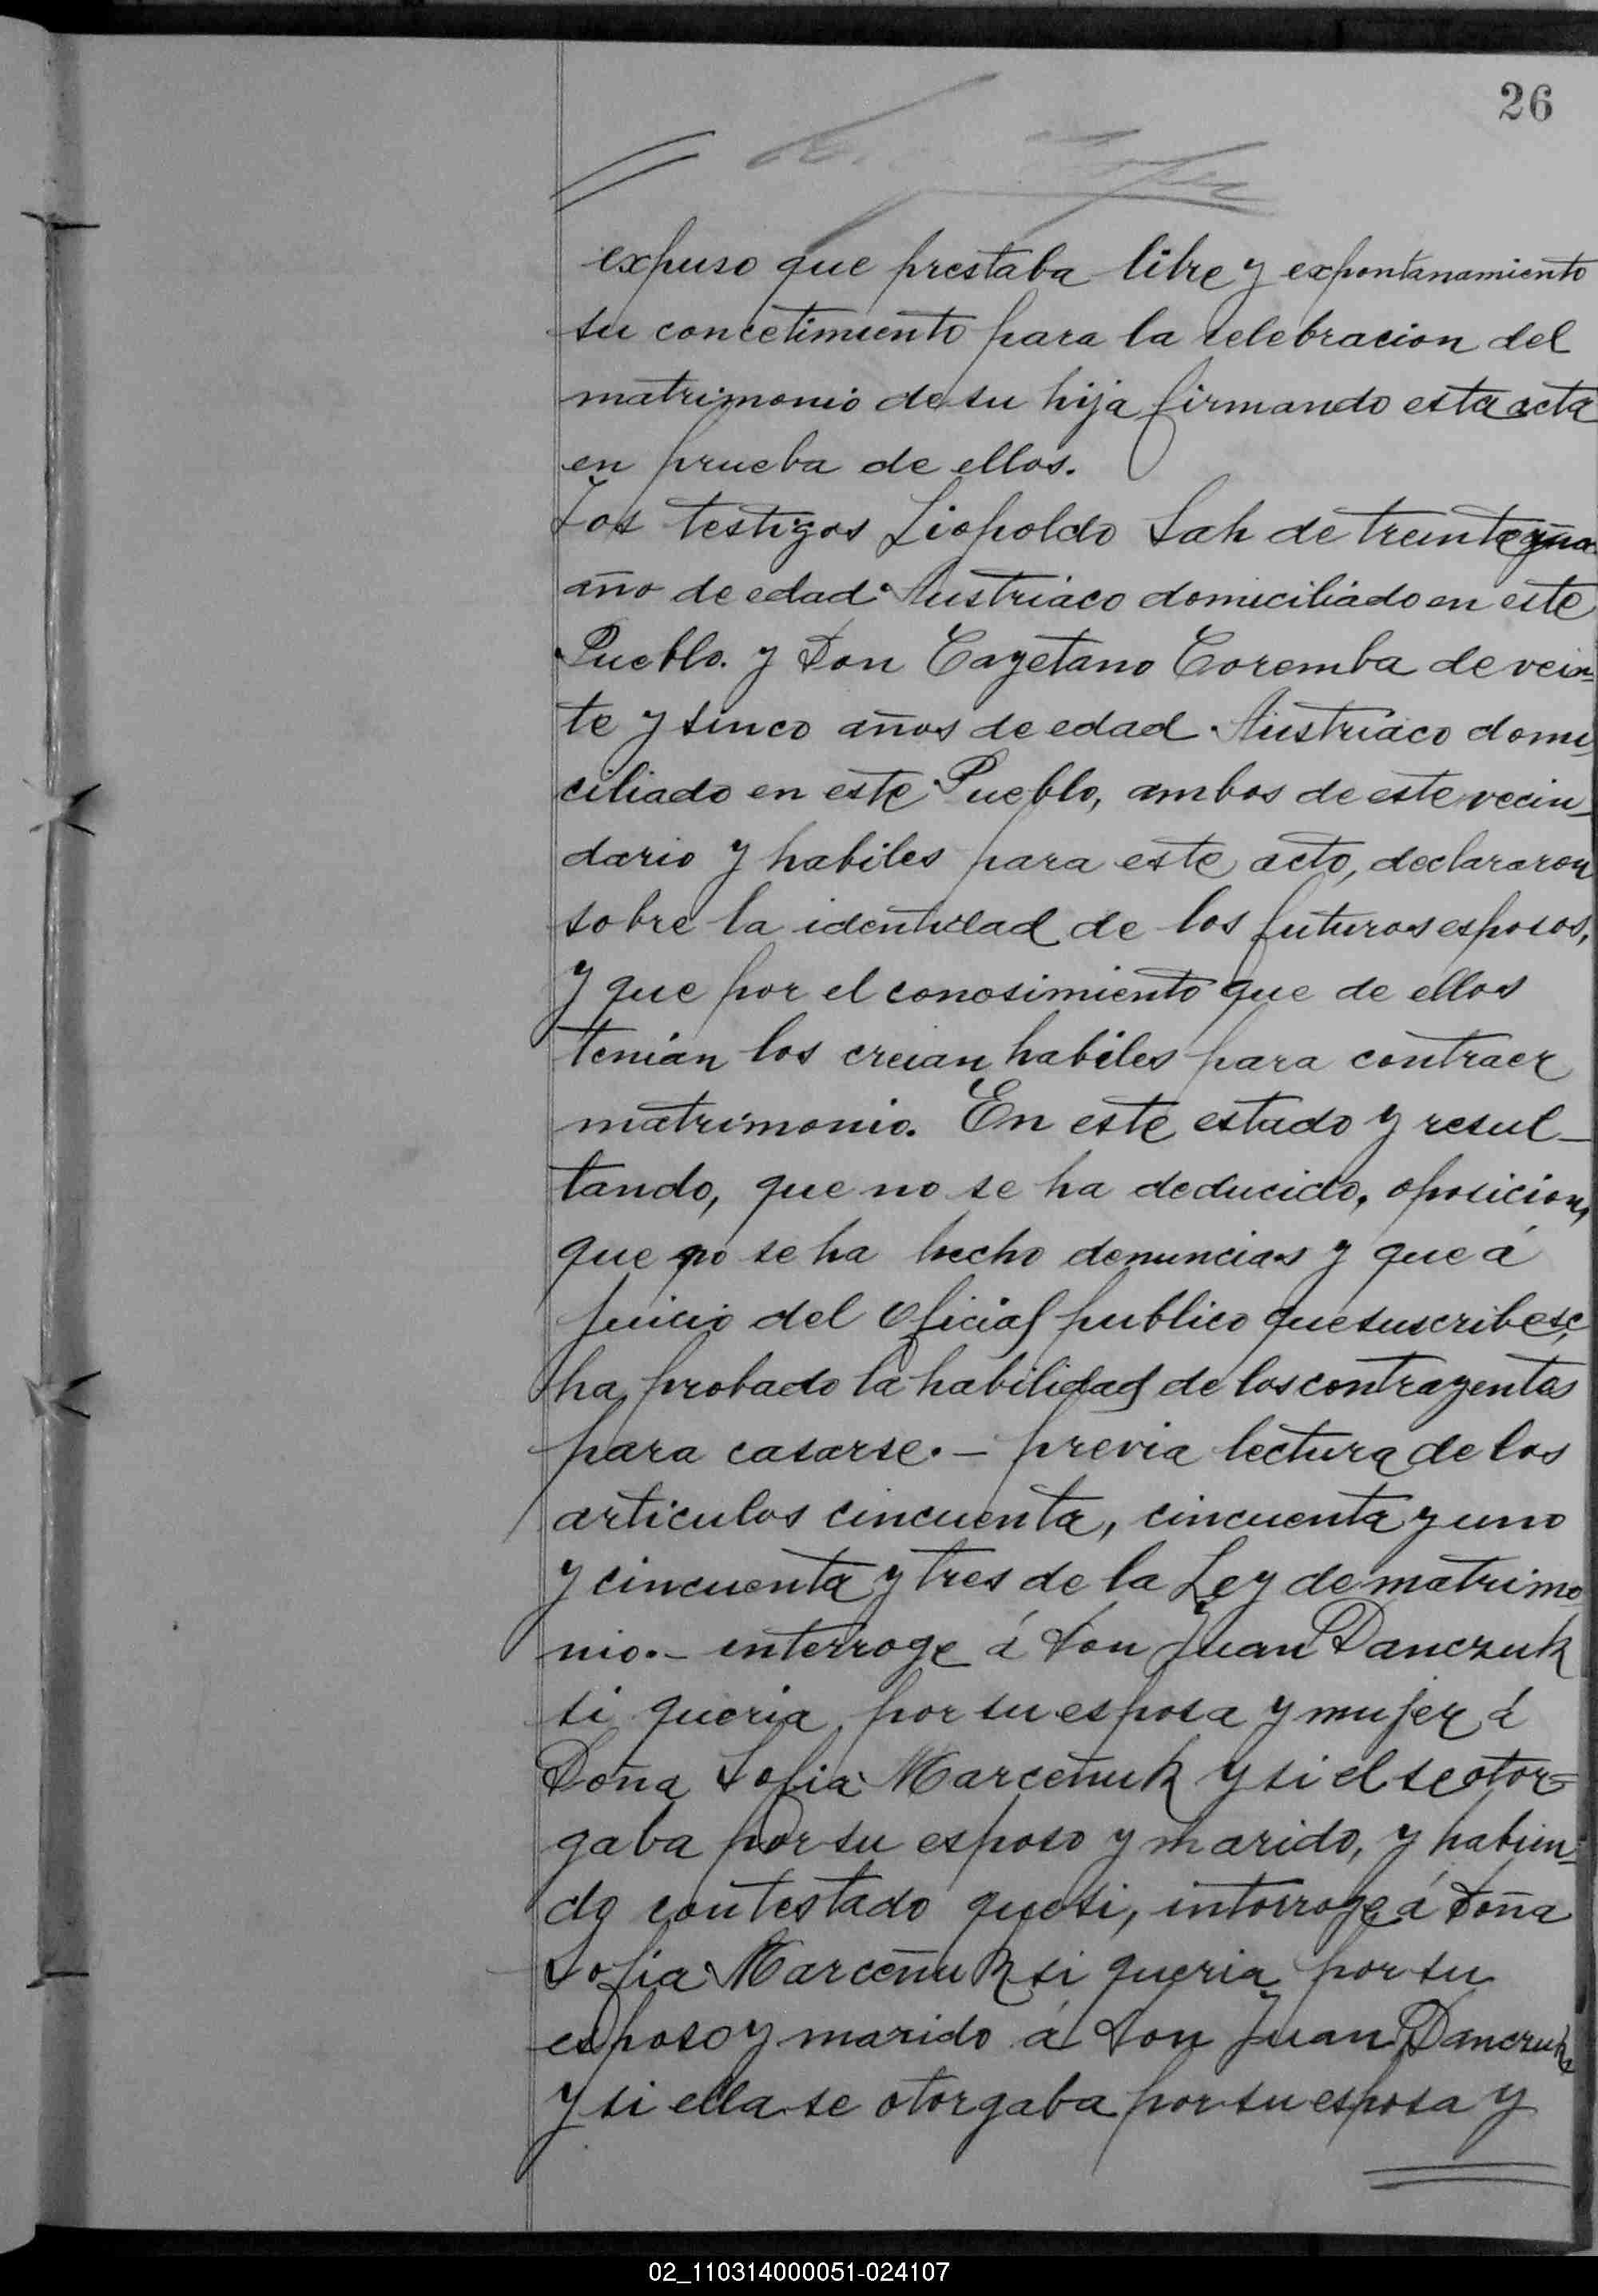 26
expuso que prestaba libre y expontanamiento
su concetimiento para la selebracion del
matrimonio de su hija firmando esta acta
en prueba de ellos.
Los testigos Liopoldo Sah de treinta y una
año de edad Austriaco domiciliado en este
Pueblo. y Don Cayetano Coremba de vein-
te y sinco años de edad Austriaco domi-
ciliado en este Pueblo, ambos de este vecin-
dario y habiles para este acto, declararon
sobre la identidad de los futuros esposos,
y que por el conosimiento que de ellos
tenian los creian habiles para contraer
matrimonio. En este estado y resul-
tando, que no se ha deducido, oposicion,
que no se ha hecho denuncias y que á
juicio del oficial publico que suscribe se
ha probado la habilidad de los contrayentes
para casarse.- previa lectura de los
articulos cincuenta, cincuenta y uno
y cincuenta y tres de la Ley de matrimo-
nio.- interroge á Don Juan Danczuk
si queria por su esposa y mujer á
Doña Sofia Marceñuk y si el se otor=
gaba por su esposo y marido, y habien-
do contestado que si, intorroge á Doña
Sofia Marceñuk si queria por su
esposo y marido á Don Juan Danczuk
y si ella se otorgaba por su esposa y
02_110314000051-024107